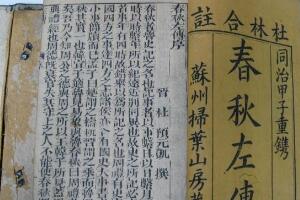 杜林合註
同治甲子重鐫
春秋左傳
蘇州掃葉山房
春秋左傳序
晉 杜預元凱 撰
春秋者魯史記之名也記事者以事繫日以日繫月
時以時繫年所以紀遠近別同異也故史之所
首事年有四時故錯舉以為所記之名也周禮有史
國四方之事達四方之志諸侯亦各有國史大事書
小事簡牘而已孟子曰楚謂之檮杌晉謂之乘而魯
春秋其實一也韓宣子適魯見易象與魯春秋曰周禮
矣吾乃今知周公之德與周之所以王韓子所見蓋
典禮經也周德既衰官失其守上之人不能使春秋